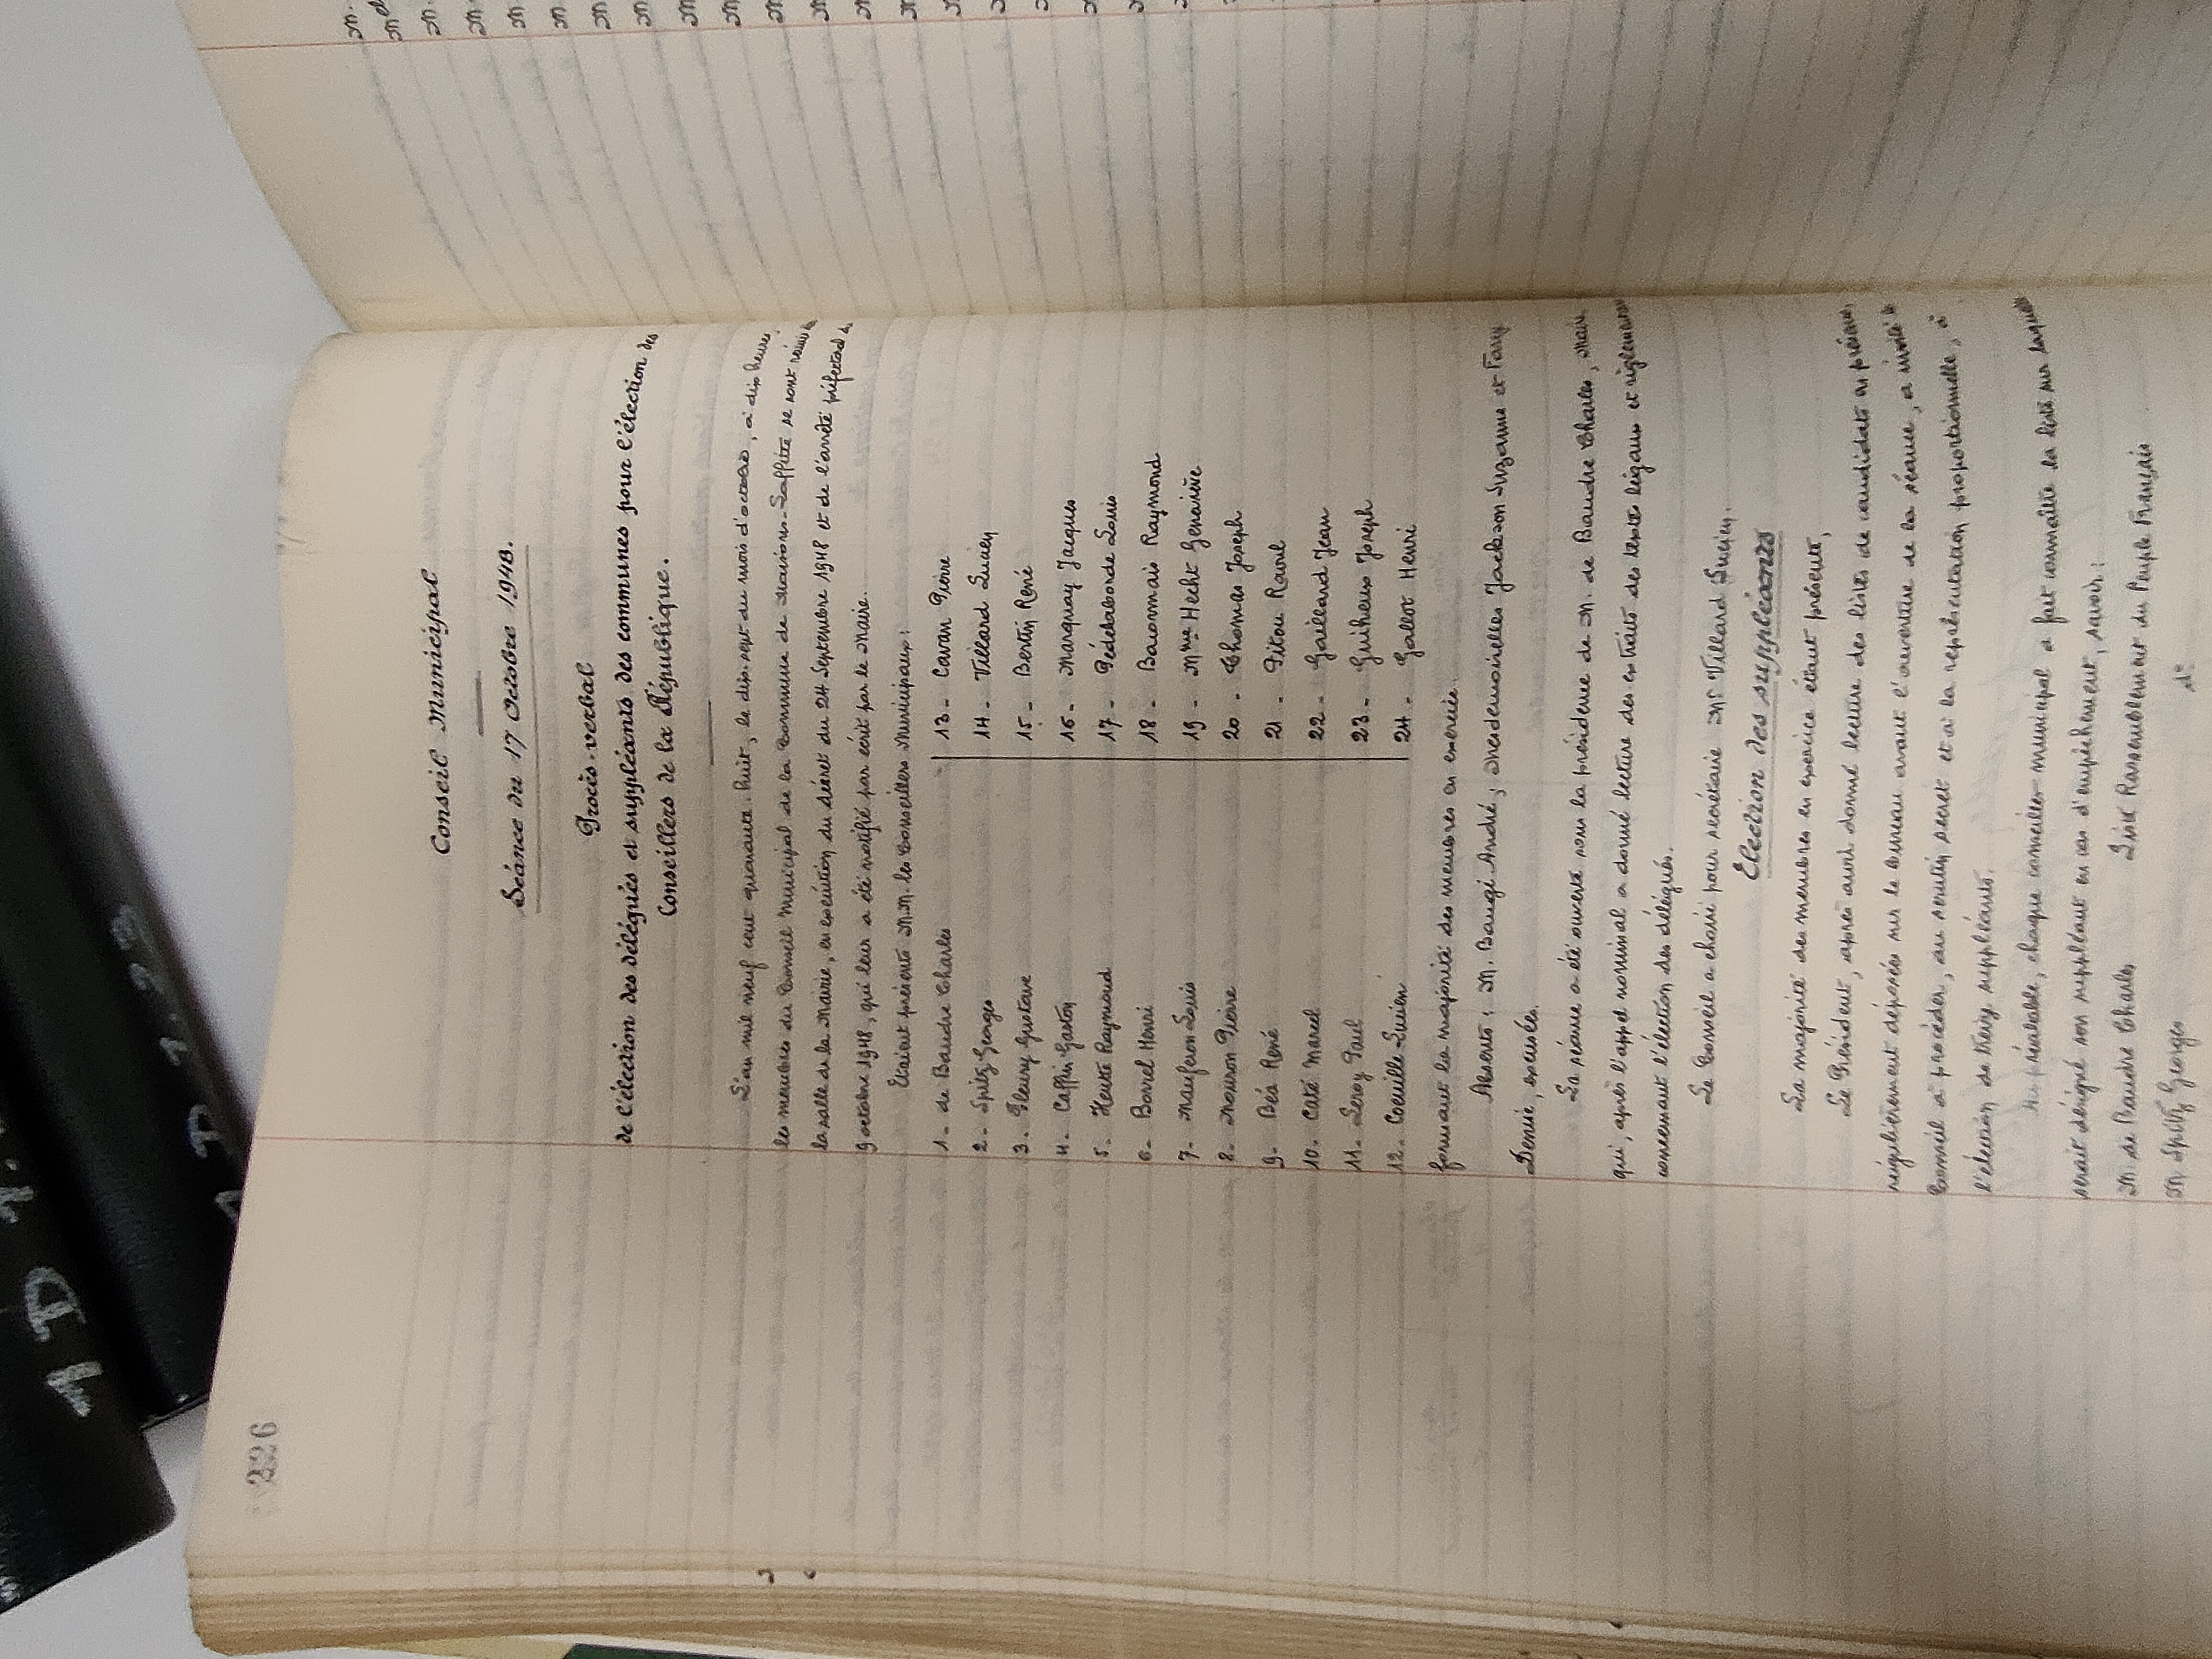 226
Conseil Municipal
Séance du 17 Octobre 1948.
Procès-verbal
de l'élection des délégués et suppléants des communes pour l'élection des
Conseillers de la République.
L'an mil neuf cent quarante-huit, le dix-sept du mois d'octobre, à dix heures,
les membres du Conseil Municipal de la Commune de Maisons-Laffitte se sont réunis
la salle de la Mairie, en exécution du décret du 24 Septembre 1948 et de l'arrêté préfectoral d
9 octobre 1948, qui leur a été notifié par écrit par le Maire.
Etaient présents M.M. les Conseillers Municipaux:
1 - de Baudre Charles
2 - Spitz Georges
3 - Fleury Gustave
4 - Caffin Gaston
5 - Heute Raymond
6 - Borrel Henri
7 - Mauferon Louis
8 - Mouron Pierre
9 - Béa René
10 - Caté Marcel
11 - Leroy Paul
12 - Coeuille Lucien
13 - Cavan Pierre
14 - Villard Lucien
15 - Bertin René
16 - Marquay Jacques
17 - Pédelaborde Louis
18 - Bacommais Raymond
19 - Mme Hecht Geneviève
20 - Thomas Joseph
21 - Pitou Raoul
22 - Gaillard Jean
23 - Guiheux Joseph
24 - Gallot Henri
formant la majorité des membres en exercice.
Absents: M. Baugi André, Mesdemoiselles Jackson Suzanne et Fary
Denise, excusées.
La séance a été ouverte sous la présidence de M. de Baudre Charles, maire
qui, après l'appel nominal a donné lecture des extraits des textes légaux et réglementaires
concernant l'élection des délégués.
Le Conseil a choisi pour secrétaire Mr Villard Lucien.
Election des suppléants
La majorité des membres en exercice étant présente,
Le Président, après avoir donné lecture des listes de candidats en présence
régulièrement déposées sur le bureau avant l'ouverture de la séance, a invité le
Conseil à procéder, au scrutin secret et à la représentation proportionnelle, à
l'élection de treize suppléants.
Au préalable, chaque conseiller municipal a fait connaître la liste sur laquelle
serait désigné son suppléant en cas d'empêchement, savoir:
M de Baudre Charles Liste Rassemblement du Peuple Français
M Spitz Georges do